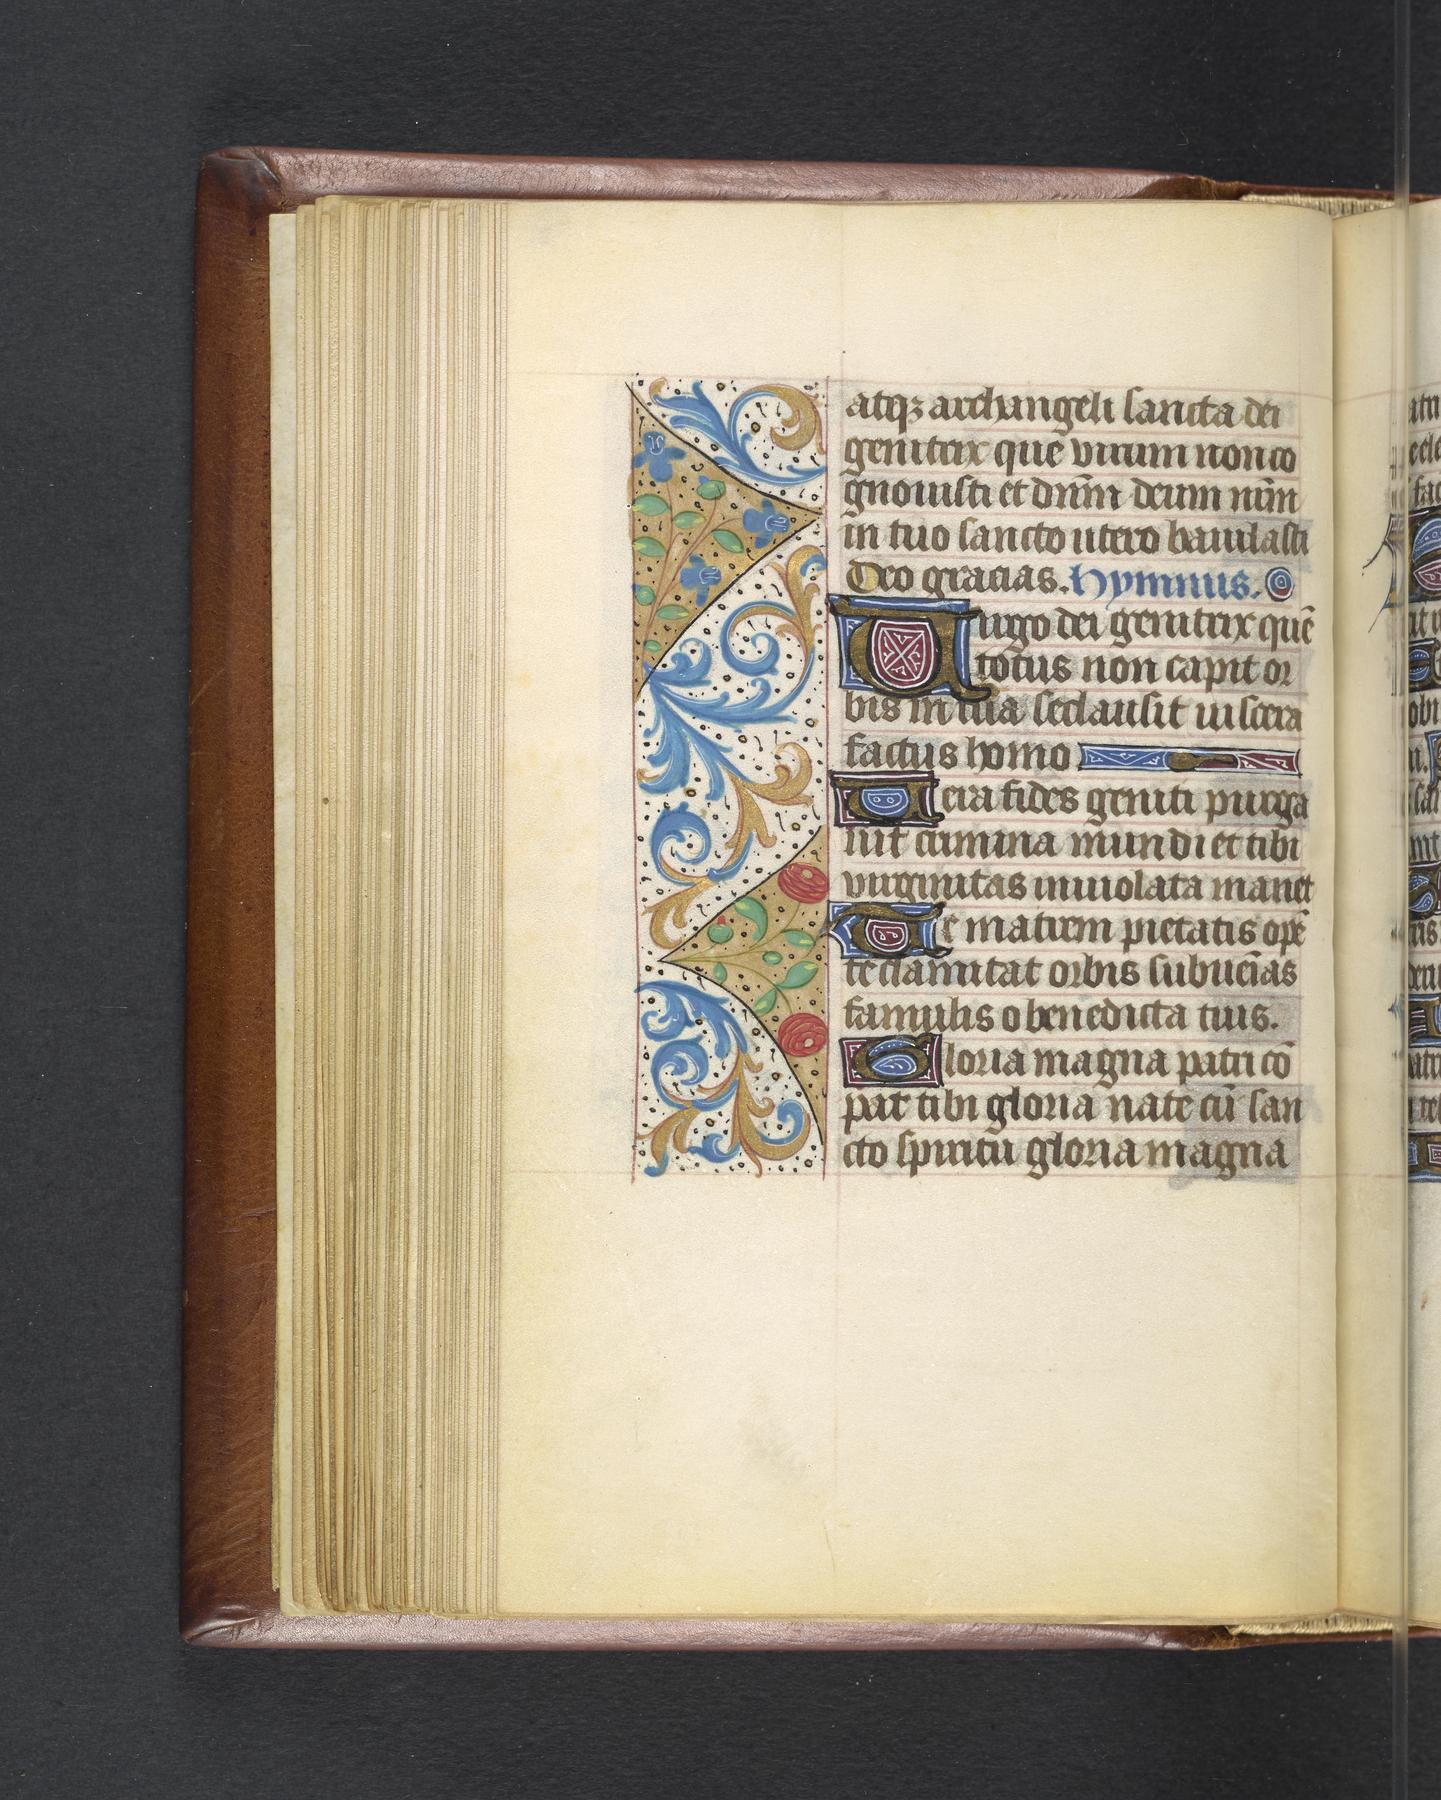 atqꝫ archangeli sancta dei
genitrix que virum non co
gnouisti et dn̄m deum nr̄m
in tuo sancto utero baiulasti
Deo gracias. Hymnus.
Uirgo dei genitrix quē
totus non capit or
bis in tua se clausit uiscera
factus homo
Uera fides geniti purga
uit crimina mundi et tibi
virginitas inuiolata manet
Te matrem pietatis opē
te clamitat orbis subuenias
famulis o benedicta tuis.
Gloria magna patri cō
par tibi gloria nate cū san
cto spiritu gloria magna